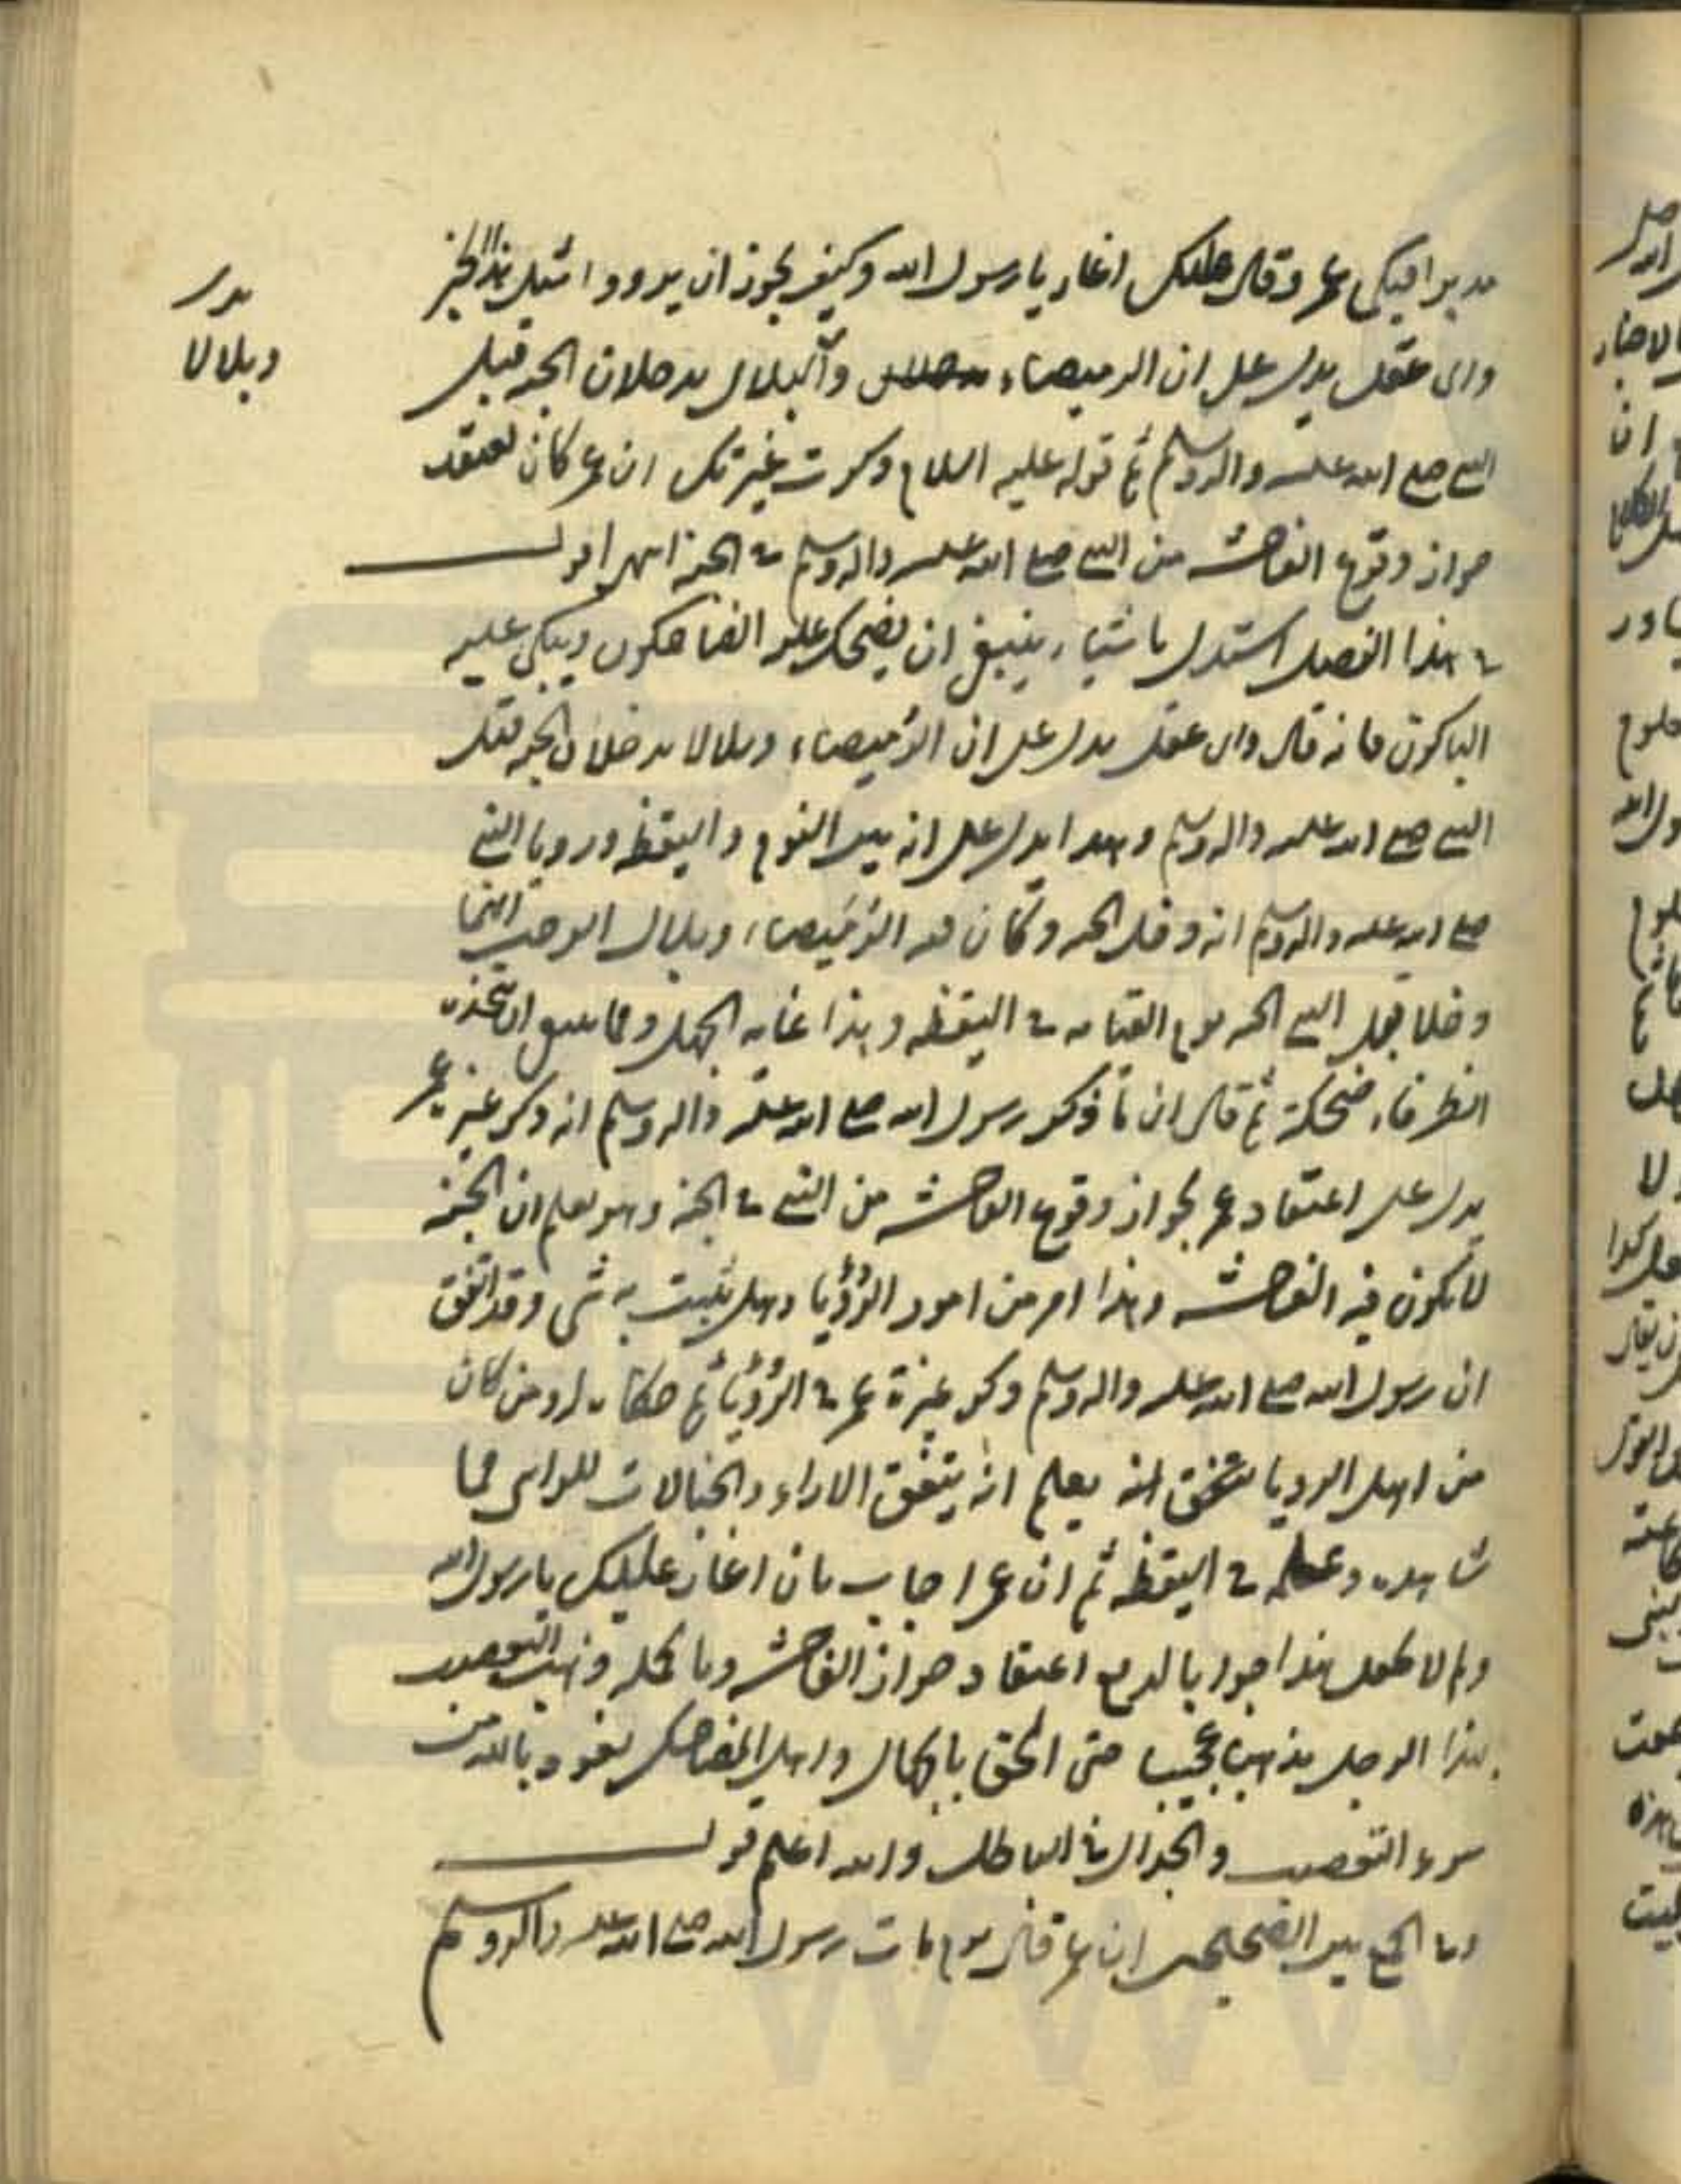 مدبرا فبكى عمر وقال عليك اغار يا رسول الله وكيف يجوز ان يرووا مثل هذا الخبر
واى عقل يدل على ان الرميصاء وبلال يدخلان الجنة قبل
النبى صلى الله عليه واله وسلم ثم قوله عليه السلام ذكرت غيرتك ان عمر كان يعتقد
جواز وقوع الفاحشة من النبى صلى الله عليه واله وسلم فى الجنة انتهى اقول
فى هذا الفصل استدل باشياء ينبغى ان يضحك عليه الضاحكون ويبكى عليه
الباكون فانه قال واى عقل يدل على ان الرميصاء وبلالا يدخلان الجنة قبل
النبى صلى الله عليه واله وسلم وهذا يدل على انه بين النوم واليقظة ورويا النبى
صلى الله عليه واله وسلم انه دخل الجنة وكان فيه الرميصاء وبلال الوجب انهما
دخلا قبل النبى الجنة يوم القيامة فى اليقظة وهذا غاية الجهل ومما ينبغى ان يتخذه
الظرفاء ضحكة ثم قال ان ما ذكر رسول الله صلى الله عليه واله وسلم انه ذكر غيرة عمر
يدل على اعتقاد عمر لجواز وقوع الفاحشة من النبى فى الجنة وهو يعلم ان الجنة
لا يكون فيه الفاحشة وهذا امر من امور الرؤيا وهل يثبت به شى وقد اتفق
ان رسول الله صلى الله عليه واله وسلم ذكر غيرة عمر فى الرؤيا ثم حكاه له ومن كان
من اهل الرويا يتحقق انه يعلم انه يتفق الاراء والخيالات للرائى مما
شاهده وعلمه فى اليقظة ثم ان عمر اجاب بان اغار عليك يا رسول الله
ولم لا يجعل هذا جوابا لدفع اعتقاد جواز الفاحشة وبالجملة ذهب التعصب
بهذا الرجل مذهبا عجيبا حتى الحق بالجهال واهل المضاحك نعوذ بالله من
سوء التعصب والجدال فى الباطل والله اعلم قوله
وفى الجمع بين الصحيحين ان عمر قال يوم مات رسول الله صلى الله عليه واله وسلم
وبلالا